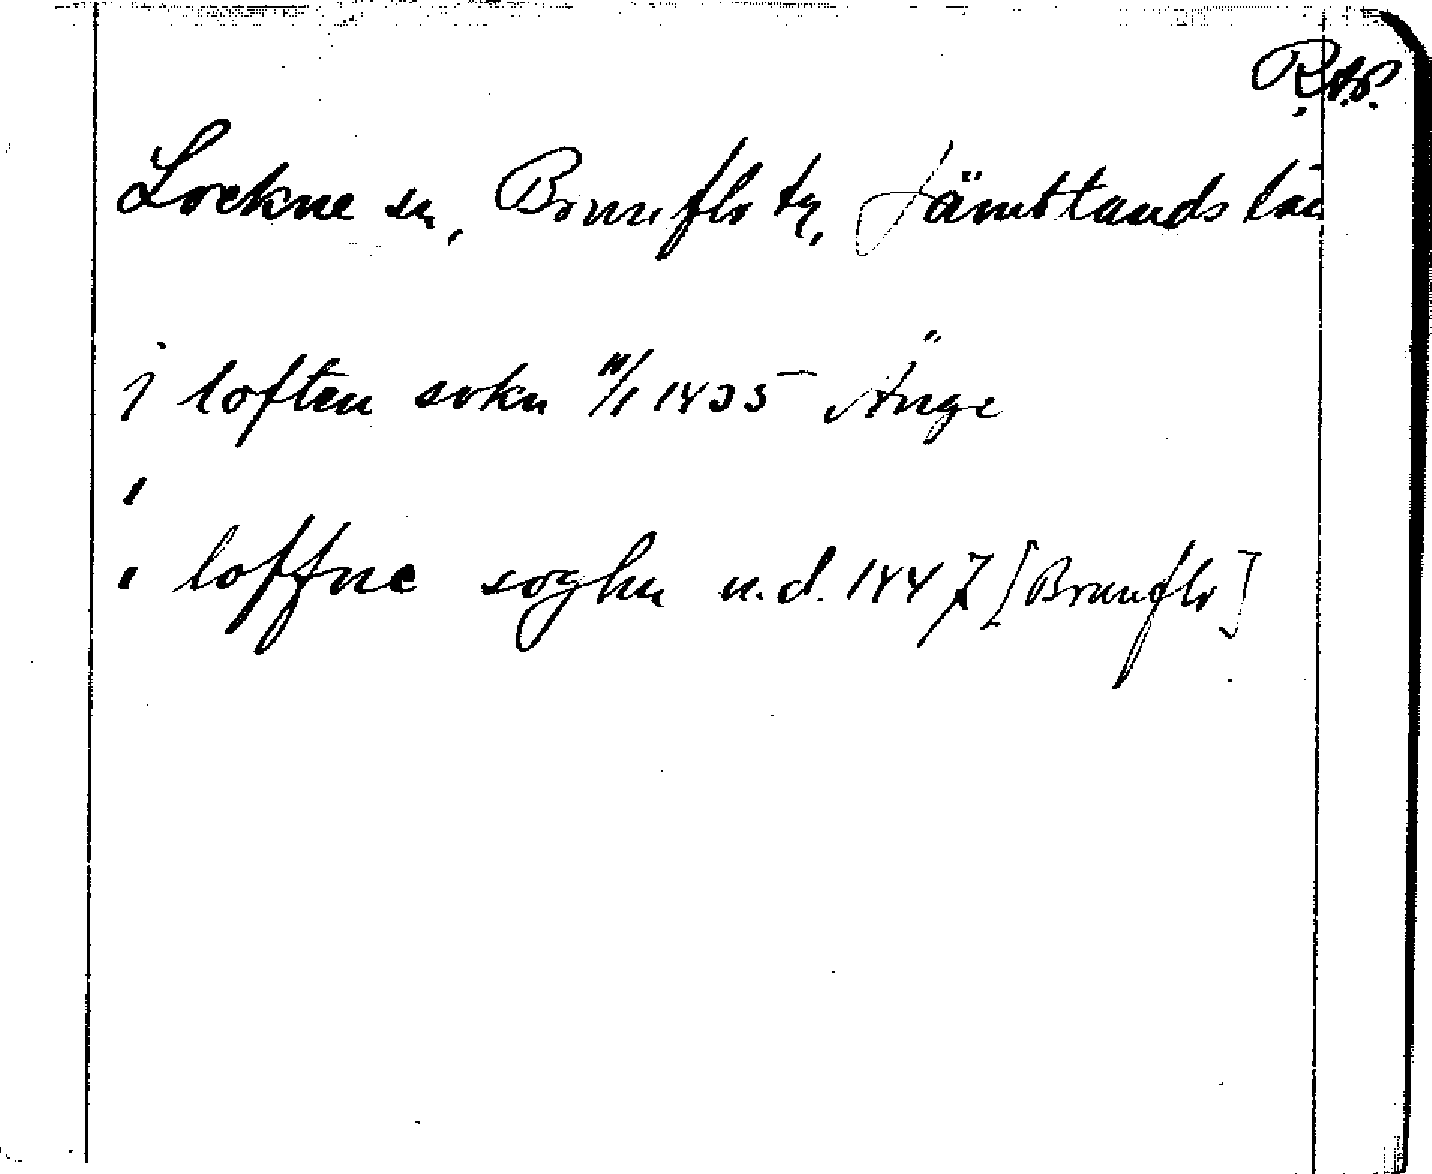 R.A.P.
Lockne sn, Brunflo tg, Jämtlands län
i loften sokn 11/1 1435 Änge
i loffne soghn u.d. 1447 [Brunflo]